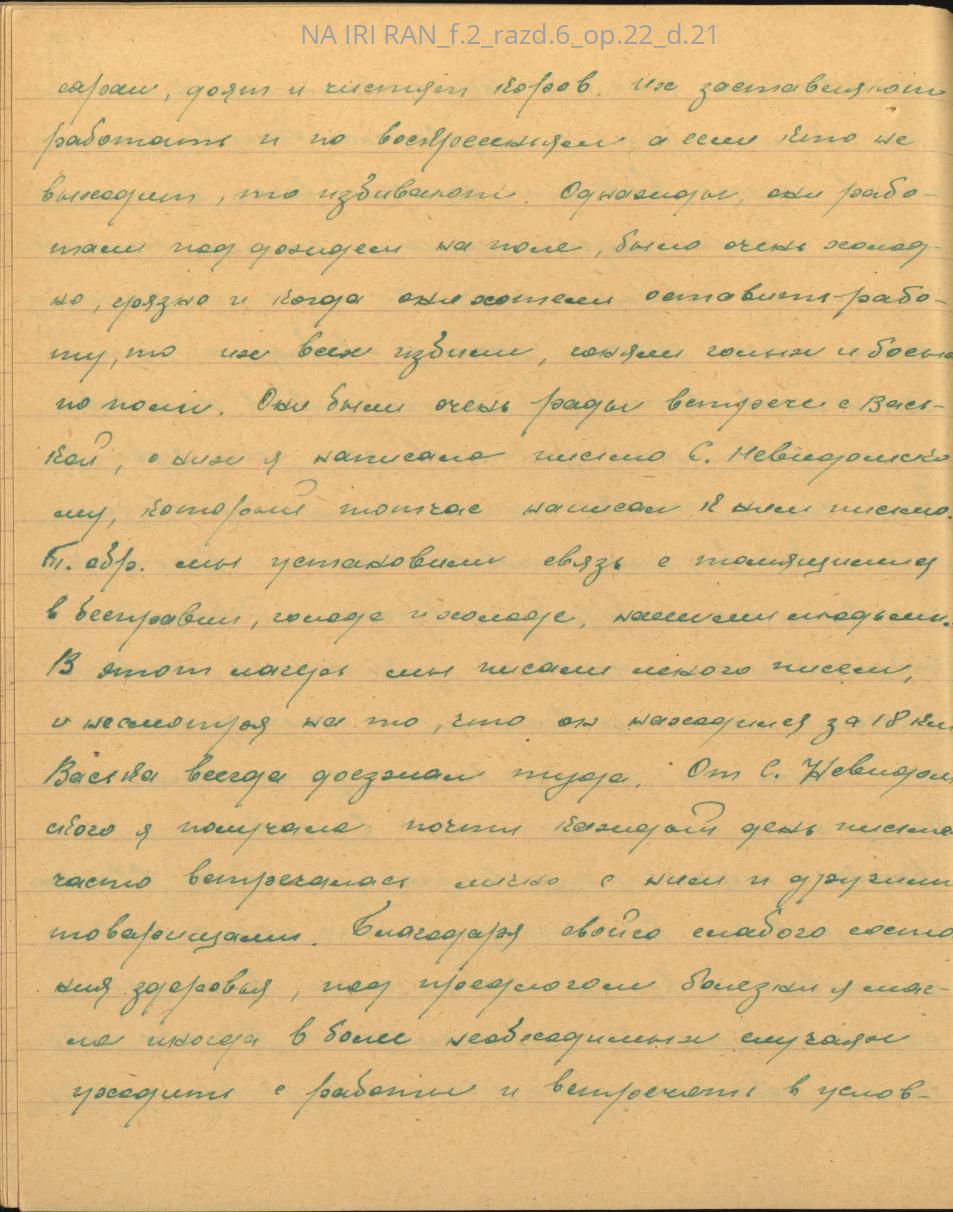 NA IRI RAN_f.2_razd.6_op.22_d.21
сараи, доят и чистят коров. их заставляют
работать и по воскресеньям а если кто не
выходит, то избивают. Однажды, они рабо-
тали под дождем на поле, было очень холод-
но, грязно и когда они хотели оставить рабо-
ту, то их всех избили, гоняли голых и босых
по полю. Они были очень рады встрече с Вась-
кой, о них я написала письмо С. Невидомско
му, который тотчас написал к ним письмо.
Т. обр. мы установили связь с томящимися
в бесправии, голоде и холоде, нашими людьми.
В этот лагерь мы писали много писем,
и несмотря на то, что он находился за 18 км
Васька всегда доезжал туда. От С. Невидом
ского я получала почти каждый день письма
часто встречалась лично с ним и другими
товарищами. Благодаря своего слабого состо
ния здоровья, под предлогом болезни я мог-
ла иногда в более необходимых случаях
уходить с работы и встречать в услов-